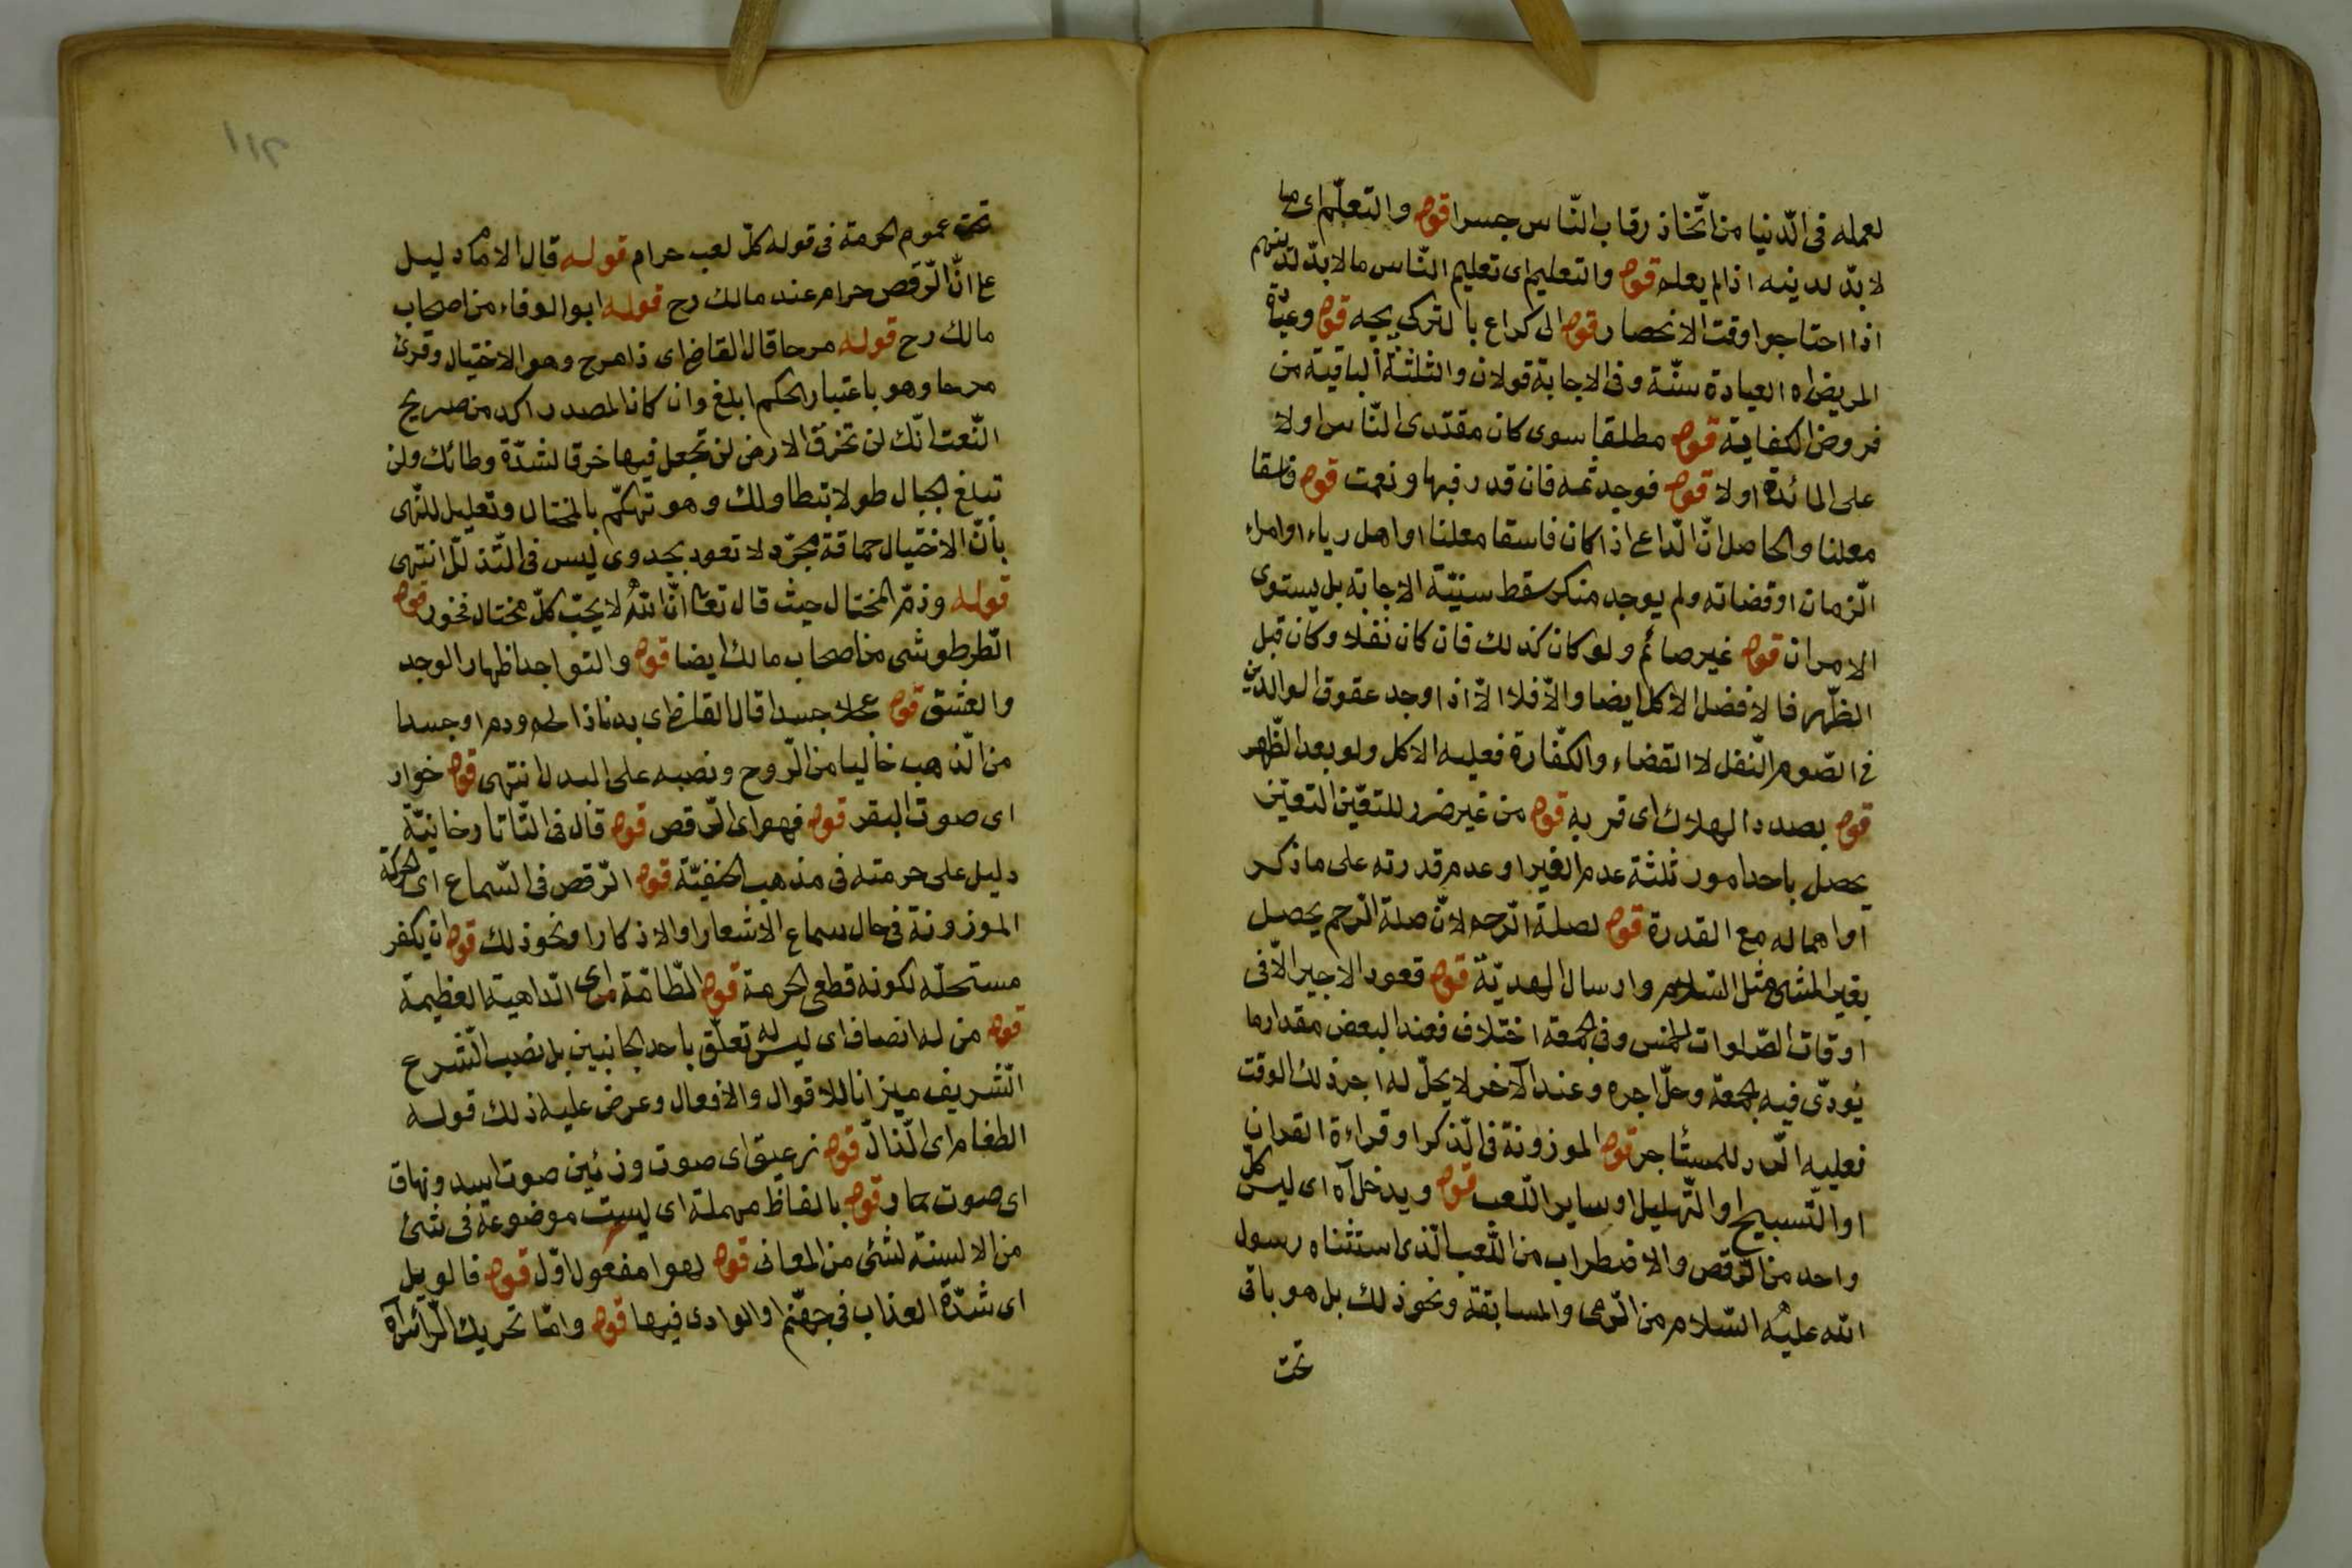 لعمله فى الدّنيا من اتّخاذ رقاب النّاس جسرا قوله والتعلّم اى ما
لا بدّ لدينه اذا لم يعلم قوله والتعليم اى تعليم النّاس ما لا بدّ لدينهم
اذا احتاجوا وقت الانحصار قوله الى كراع بالتركى پچه قوله وعيادة
المريض اه العيادة سنّة وفى الاجابة قولان والثلثة الباقية من
فروض الكفاية قوله مطلقا سوى كان مقتدى النّاس او لا
على المائدة او لا قوله فوجد ثمه فان قدر فبها ونعمت قوله فاسقا
معلنا والحاصل انّ الدّاعى اذا كان فاسقا معلنا او اهل رياء او امراء
الزمان او قضاته ولم يوجد منكر سقط سنيّة الاجابة بل يستوى
الامران قوله غير صائم ولو كان كذلك فان كان نفلا وكان قبل
الظّهر فالافضل الاكل ايضا والّا فلا الّا اذا وجد عقوق الوالدين
فى الصّوم النّفل لا القضاء والكفّارة فعليه الاكل ولو بعد الظّهر
قوله بصدد الهلاك اى قربه قوله من غير ضرر للتعيّن التعيّن
يحصل باحد امور ثلثة عدم الغير او عدم قدرته على ما ذكر
او اهماله مع القدرة قوله لصلة الرّحم لانّ صلة الرّحم يحصل
بغير المشى مثل السّلام وارسال الهديّة قوله قعود الاجير الّا فى
اوقات الصّلوات الخمس وفى الجمعة اختلاف فعند البعض مقدار ما
يؤدّى فيه الجمعة وحلّ اجره وعند الآخر لا يحلّ له اجر ذلك الوقت
فعليه الرّد للمستأجر قوله الموزونة فى الذكر او قراءة القران
او التّسبيح او التّهليل او ساير اللّعب قوله ويدخل آه اى ليس كلّ
واحد من الرّقص والاضطراب من اللّعب الّذى استثناه رسول
الله عليه السّلام من الرّمى والمسابقة ونحو ذلك بل هو باقى
تحت
تحت عموم الحرمة فى قوله كلّ لعب حرام قوله قال الامام دليل
على انّ الرّقص حرام عند مالك رح قوله ابو الوفاء من اصحاب
مالك رح قوله مرحا قال القاضى اى ذا مرح وهو الاختيال وقرئ
مرحا وهو باعتبار الحكم ابلغ وان كان المصدر اكد من صريح
النّعت انّك لن تخرق الارض لن تجعل فيها خرقا لشدّة وطائك ولن
تبلغ الجبال طولا بتطاولك وهو تهكّم بالمختال وتعليل للنّهى
بأنّ الاختيال حماقة مجرّد لا تعود بجدوى ليس فى التّذلّل انتهى
قوله وذمّ المختال حيث قال تعا انّ الله لا يحبّ كلّ مختال فخور قوله
الطّرطوشى من اصحاب مالك ايضا قوله والتواجد اظهار الوجد
والعشق قوله عجلا جسدا قال القاضى اى بدنا ذا لحم ودم او جسدا
من الذّهب خاليا من الرّوح ونصبه على البدل انتهى قوله خوار
اى صوت البقر قوله فهو اى الرّقص قوله قال فى التّاتارخانيّة
دليل على حرمته فى مذهب الحنفيّة قوله الرّقص فى السّماع اى الحركة
الموزونة فى حال سماع الاشعار او الاذكار او نحو ذلك قوله ان يكفر
مستحلّه لكونه قطعى الحرمة قوله الطّامّة اى الدّاهية العظيمة
قوله من له انصاف اى ليس له تعلّق باحد الجانبين بل نصب الشّرع
الشّريف ميزانا للاقوال والافعال وعرض عليه ذلك قوله
الطغام اى الّنذالّ قوله زعيق اى صوت وزئين صوت اسد ونهاق
اى صوت حمار قوله بالفاظ مهملة اى ليست موضوعة فى شئ
من الالسنة لشئ من المعانى قوله لهوا مفعول اوّل قوله فالويل
اى شدّة العذاب فى جهنّم او الوادى فيها قوله وامّا تحريك الرّأس آه